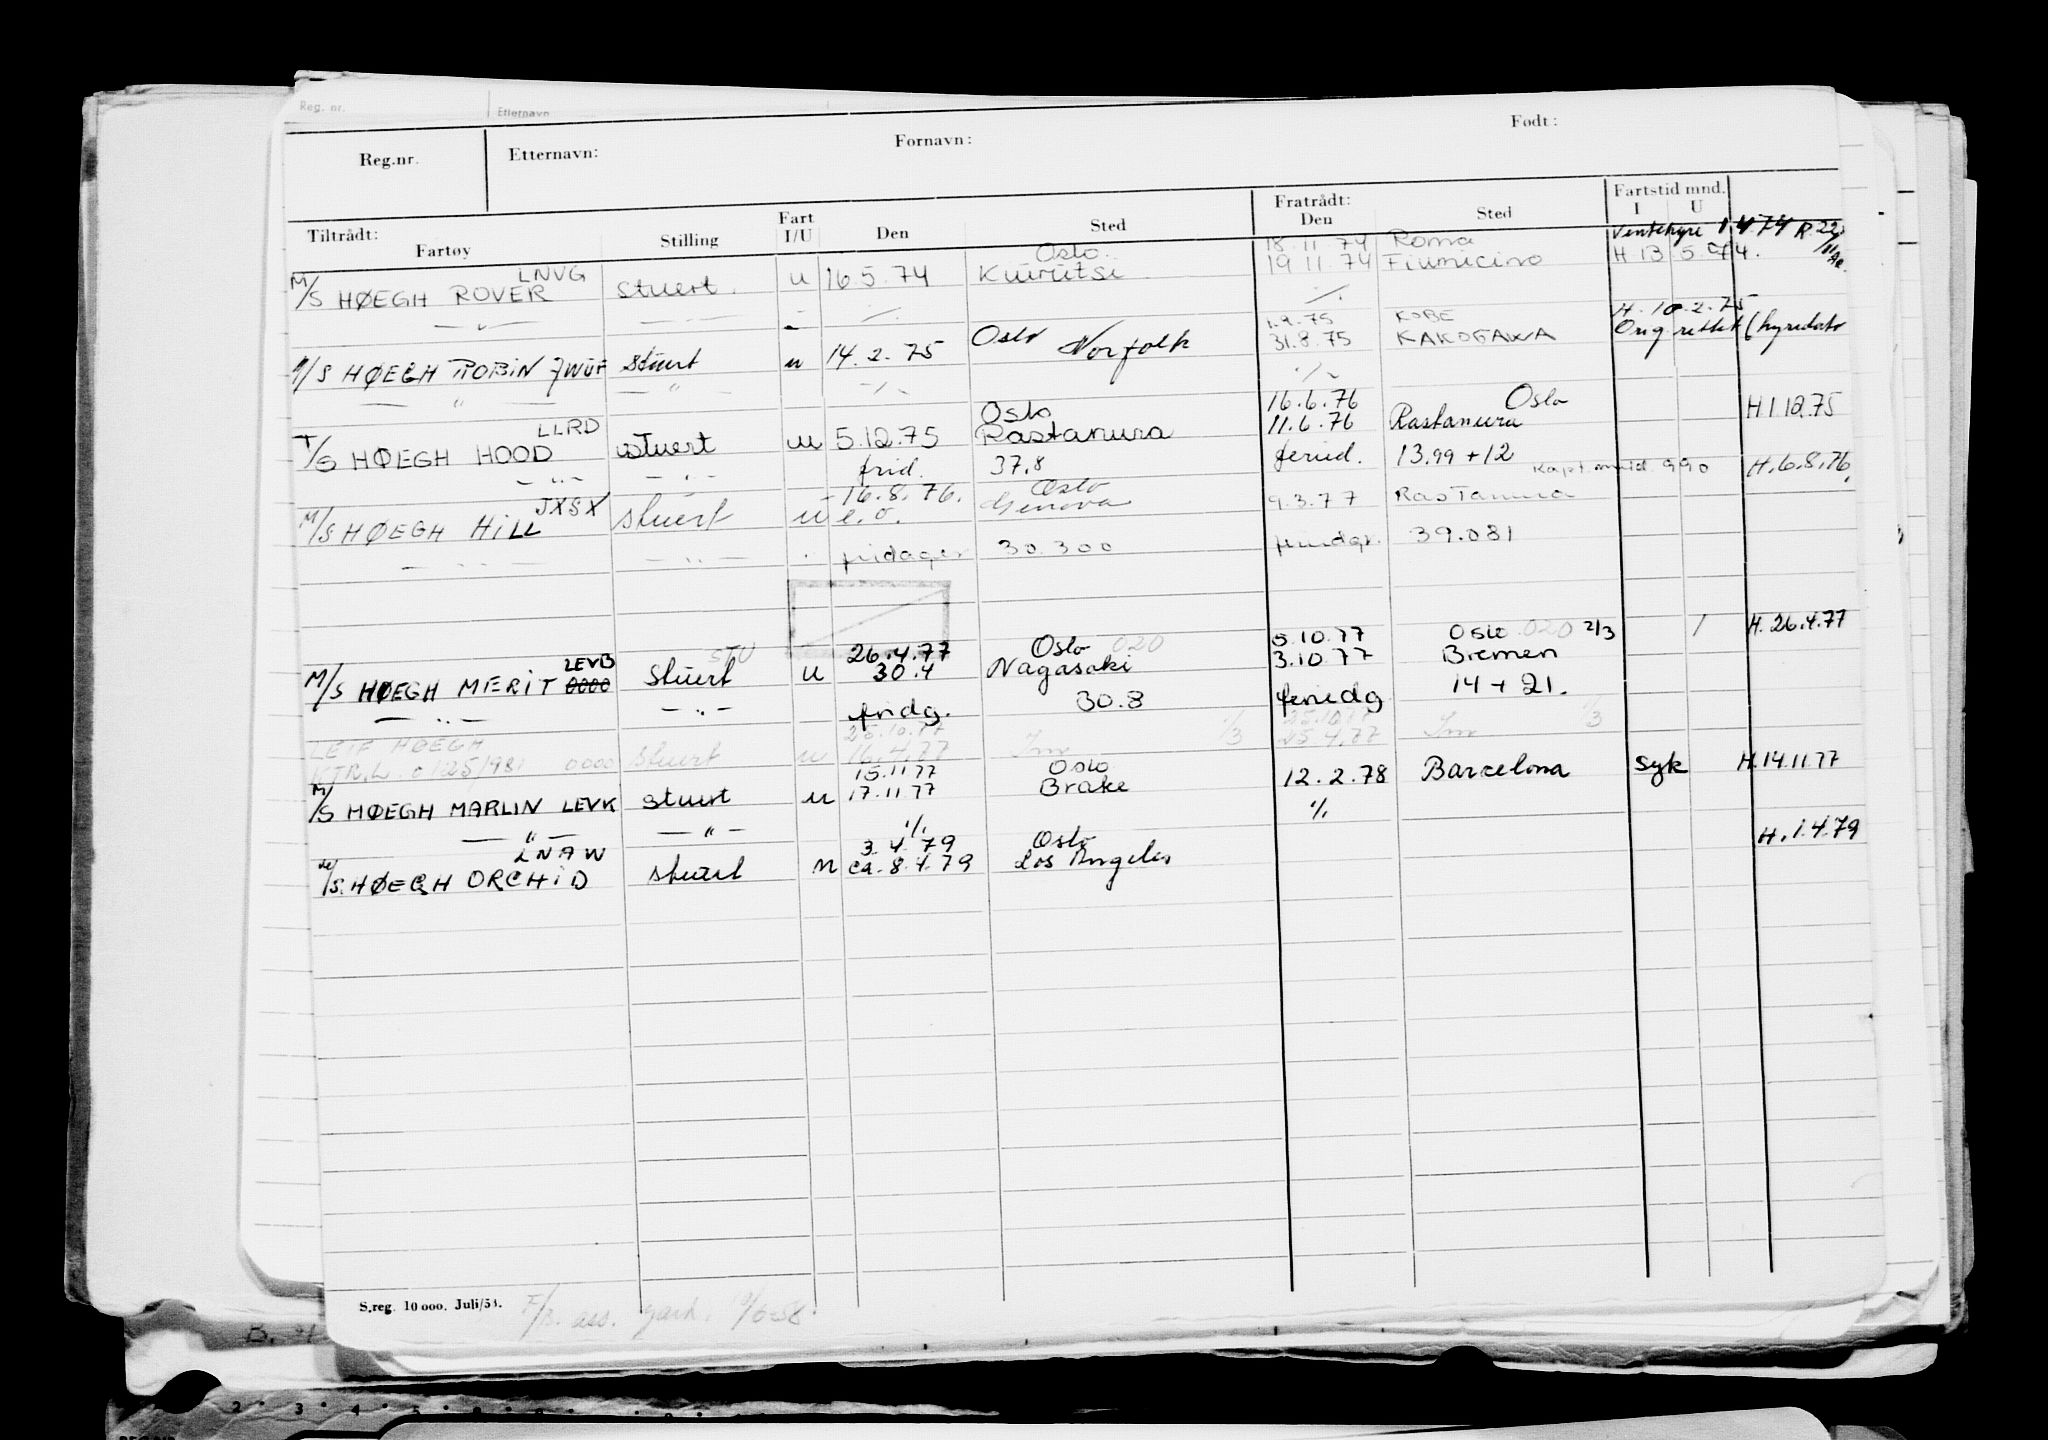 Reg. nr. Etternavn
Reg.nr. Etternavn: Fornavn: Født:
Tiltrådt: Fratrådt: Fartstid mnd.
Fartøy Stilling Fart I/U Den Sted Den Sted I U
Oslo 18.11.74 Roma Ventehyre 1 4 74 R.22/11
LNVG
M/S HØEGH ROVER stuert. u 16.5.74 19 11.74 Fiumicino H 13 5.74.
1.9.75 KOBE H. 10.2.75
M/S HØEGH ROBIN stuert u 14.2.75 Oslo Norfolk 31.8.75 KAKOGAWA Orig rettet (hyredato
LLRD Oslo 16.6.76 Oslo
T/S HØEGH HOOD stuert u 5.12.75 Rastanura 11.6.76 Rastanura H.1.12.75
— " — — " — frid. 37,8 feriid. 13.99 + 12 H.6.8.76
JXSX 16.8.76. Oslo
M/S HØEGH HILL stuert u e.o. Genova 9.3.77 Rastanura
— " — — " — fridager 30.300 39.081
STU 26.4.77 Oslo 020 5.10.77 Oslo 020 2/3 / H. 26.4.77
LEVB
M/S HØEGH MERIT 0000 Stuert u 30.4 Nagasaki 3.10 77 Bremen
— " — — " — fridg. 30.8 feriedg 14 + 21.
LEIF HØEGH 25.10.77 1/3
0000 stuert u 16.4.77 25.4.77
15.11.77 Oslo
M/S HØEGH MARLIN LEVK stuert u 17.11.77 Brake 12.2.78 Barcelona Syk H.14.11.77
— " — — " — ./. ./.
LNAW 3.4.79 Oslo H. 1.4.79
M/S. HØEGH ORCHID stuert u ca. 8.4.79 Los Angeles
S.reg. 10 000. Juli/53.